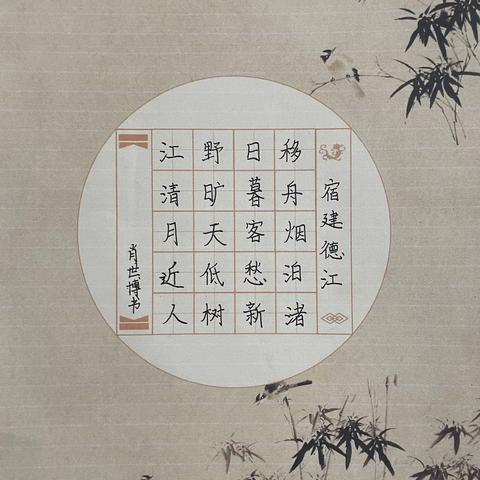 宿建德江
移舟烟泊渚
日暮客愁新
野旷天低树
江清月近人
肖世博书